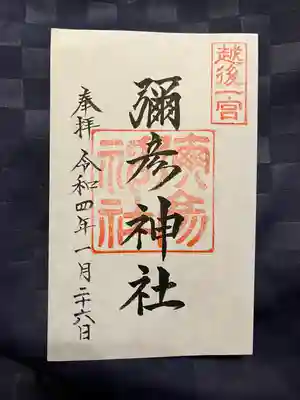 越後一宮
彌彦神社
彌彦神社
奉拝 令和四年一月二十六日